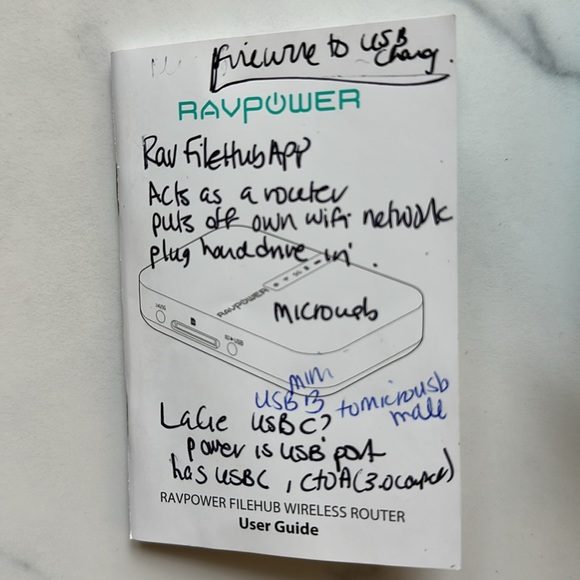 firewire to USB
Chang.
RAVPOWER
Rav FileHub App
Acts as a router
puts off own wifi network
plug harddrive in
RAVPOWER
microusb
mini
USB B to microusb
male
LaCie USB C?
power is USB port
has USBC, CtoA (3.0 compact)
RAVPOWER FILEHUB WIRELESS ROUTER
User Guide